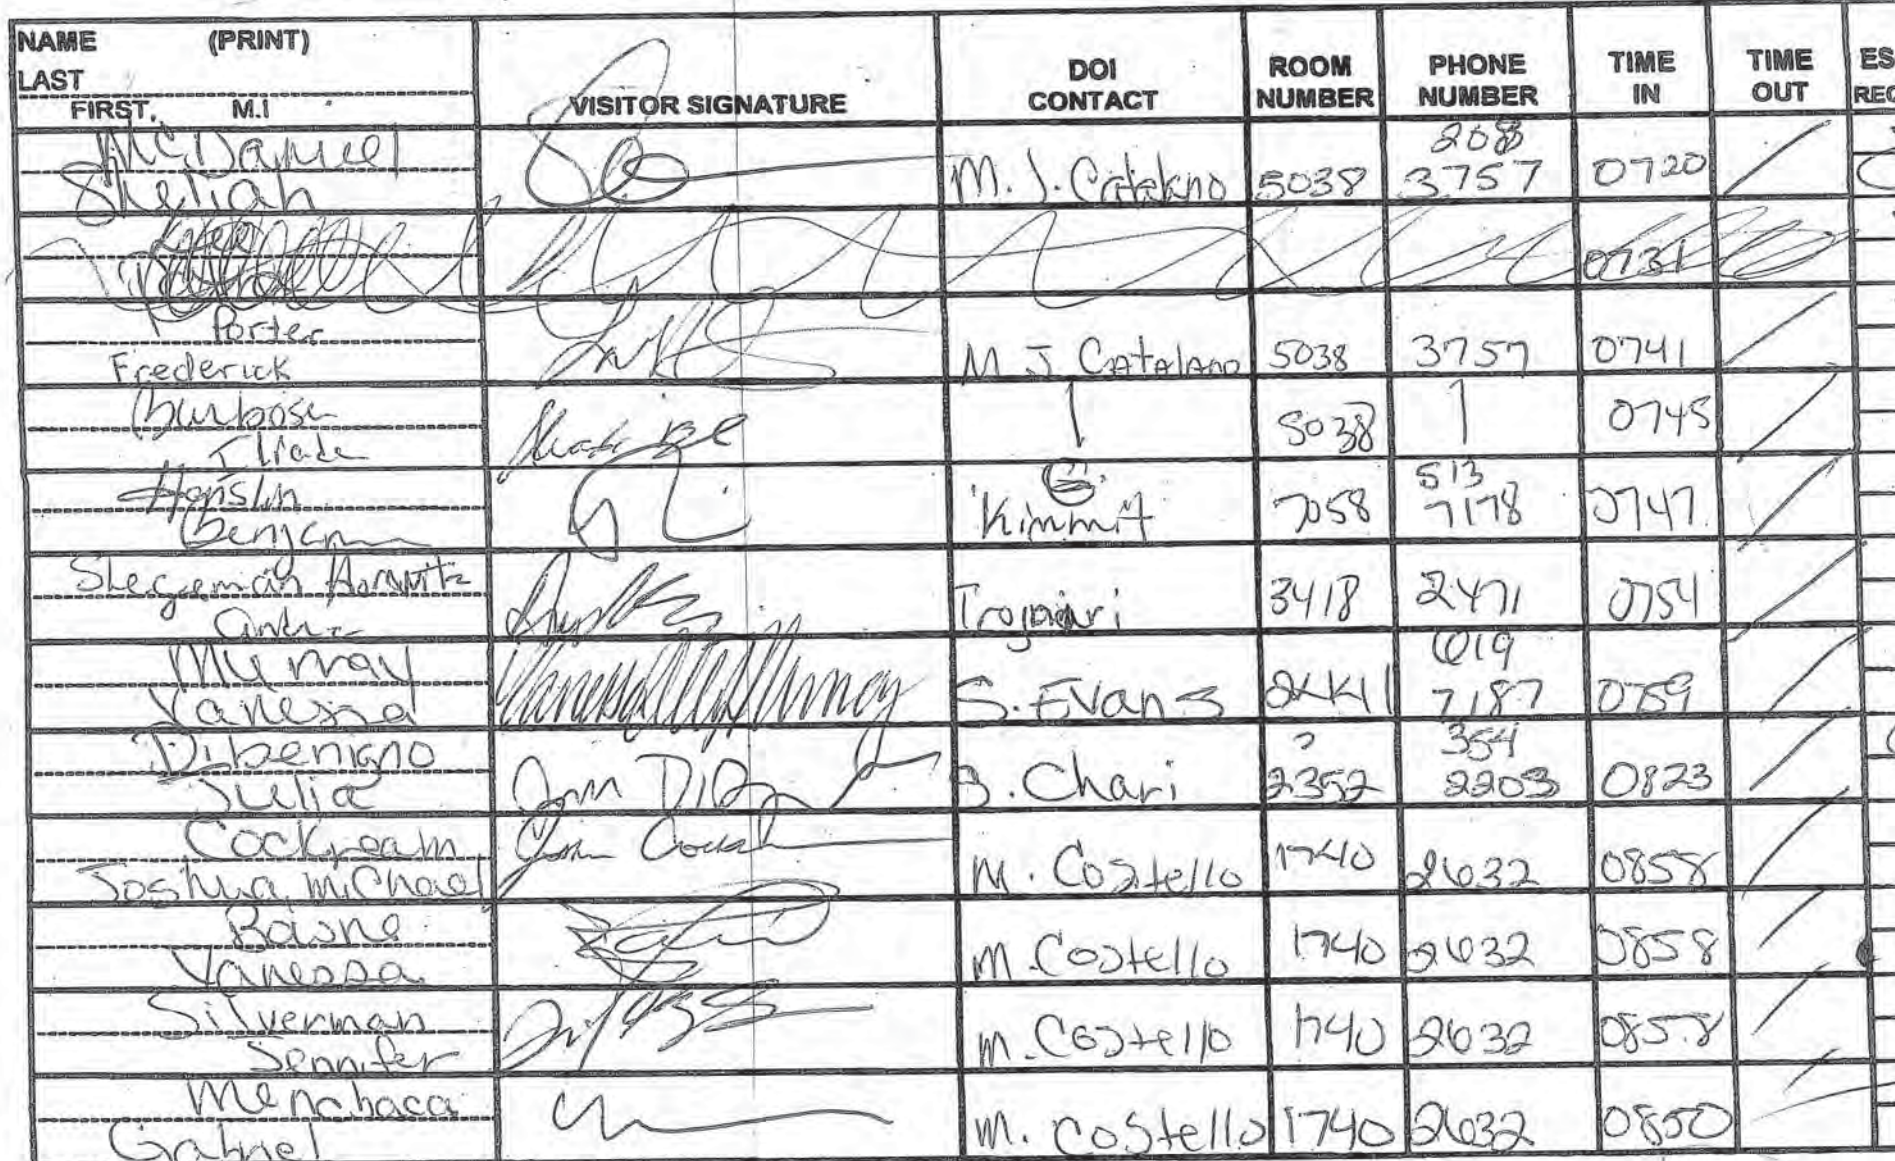 NAME (PRINT)
LAST
FIRST, M.I
VISITOR SIGNATURE
DOI CONTACT
ROOM NUMBER
PHONE NUMBER
TIME IN
TIME OUT
ES
REC
McDaniel
Sheliah
M. J. Catalano 5038 208 3757 0720
0731
Porter
Frederick
M J Catalano 5038 3757 0741
Barbosa
Iliade
5038 0745
Henslin
Benjamin
Kimmit 7058 513 7178 0747
Stegeman
3418 2471 0754
Murray
Vanessa
Vanessa Murray
S. Evans 2441 619 7187 0759
Dibenigno
Julia
S. Chari ? 2352 354 2203 0823
Cockream
Joshua Michael
M. Costello 1740 2632 0858
Vanessa
M. Costello 1740 2632 0858
Silverman
Jennifer
M. Costello 1740 2632 0858
Menchaca
Gabriel
M. Costello 1740 2632 0850